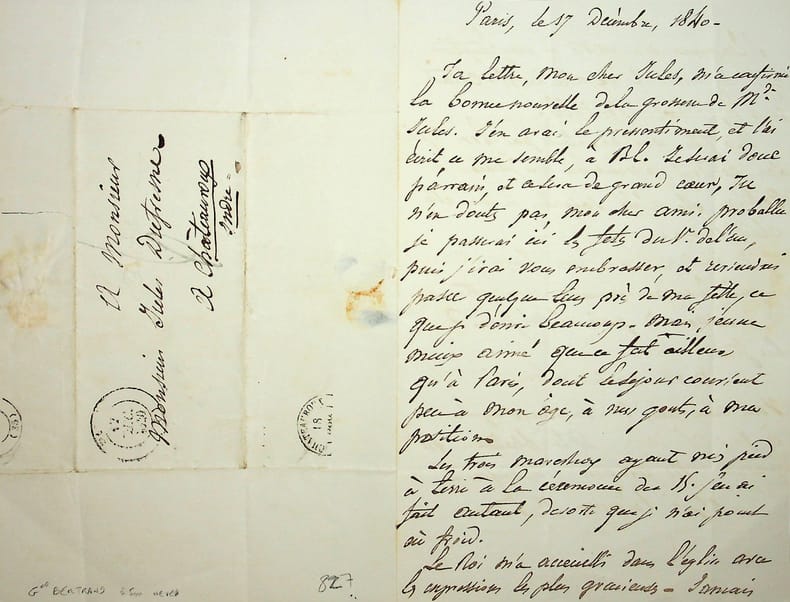 A Monsieur
Monsieur Jules Dufresne
A Châteauroux
Indre
17
DEC
CHATEAUROUX
18
Gal BERTRAND à son neveu
827
Paris, le 17 Décembre, 1840 -
Ta lettre, mon cher Jules, m'a confirmé
la bonne nouvelle de la grossesse de Mde
Jules. J'en avai le pressentiment, et l'ai
écrit ce me semble, à Bl. Je serai donc
parrain, et ce sera de grand cœur, Tu
n'en doute pas, mon cher ami. probablem
je passerai ici les fetes du 1er de l'an,
puis j'irai vous embrasser, et
passer quelque tems près de ma fille, ce
que je désire beaucoup. Mais, j'eusse
mieux aimé que ce fut ailleurs
qu'à Paris, dont le séjour convient
peu à mon âge, à mes gouts, à ma
position
Les trois marechaux ayant mis pied
à terre à la cérémonie du 15. j'en ai
fait autant, de sorte que je n'ai point
eu froid.
Le Roi m'a accueilli dans l'église avec
les expressions les plus gracieuses - Jamais